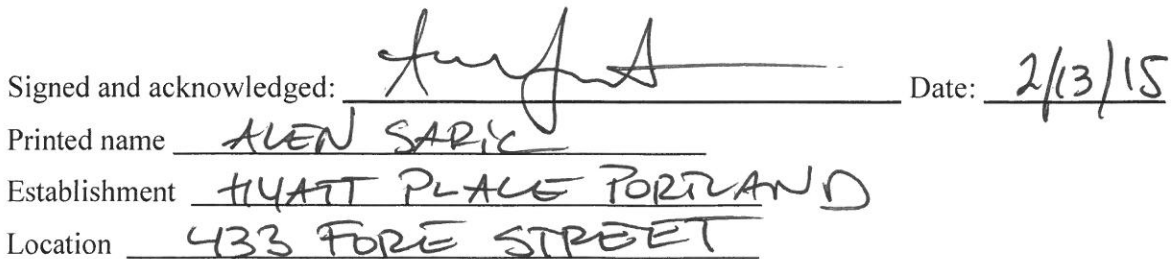 Signed and acknowledged: Date: 2/13/15
Printed name ALEN SARIC
Establishment HYATT PLACE PORTLAND
Location 433 FORE STREET